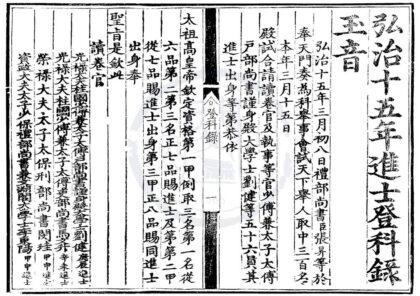 弘治十五年進士登科錄
玉音
弘治十五年三月初八日禮部尚書臣張昇等於
奉天門奏為科舉事會試天下舉人取中三百名
本年三月十五日
殿試合請讀卷官及執事等官少傅兼太子太傅
戶部尚書謹身殿大學士劉健等五十六員其
進士出身等第恭依
太祖高皇帝欽定資格第一甲例取三名第一名從
六品第二第三名正七品賜進士及第第二甲
從七品賜進士出身第三甲正八品賜同進士
出身奉
聖旨是欽此
讀卷官
光祿大夫柱國少傅兼太子太傅戶部尚書謹身殿大學士劉健 庚辰進士
光祿大夫柱國少傅兼太子太傅吏部尚書馬文升 辛未進士
榮祿大夫太子太保刑部尚書閔珪 甲申進士
資政大夫太子少保禮部尚書兼文淵閣大學士李東陽 甲申進士
登科錄
一